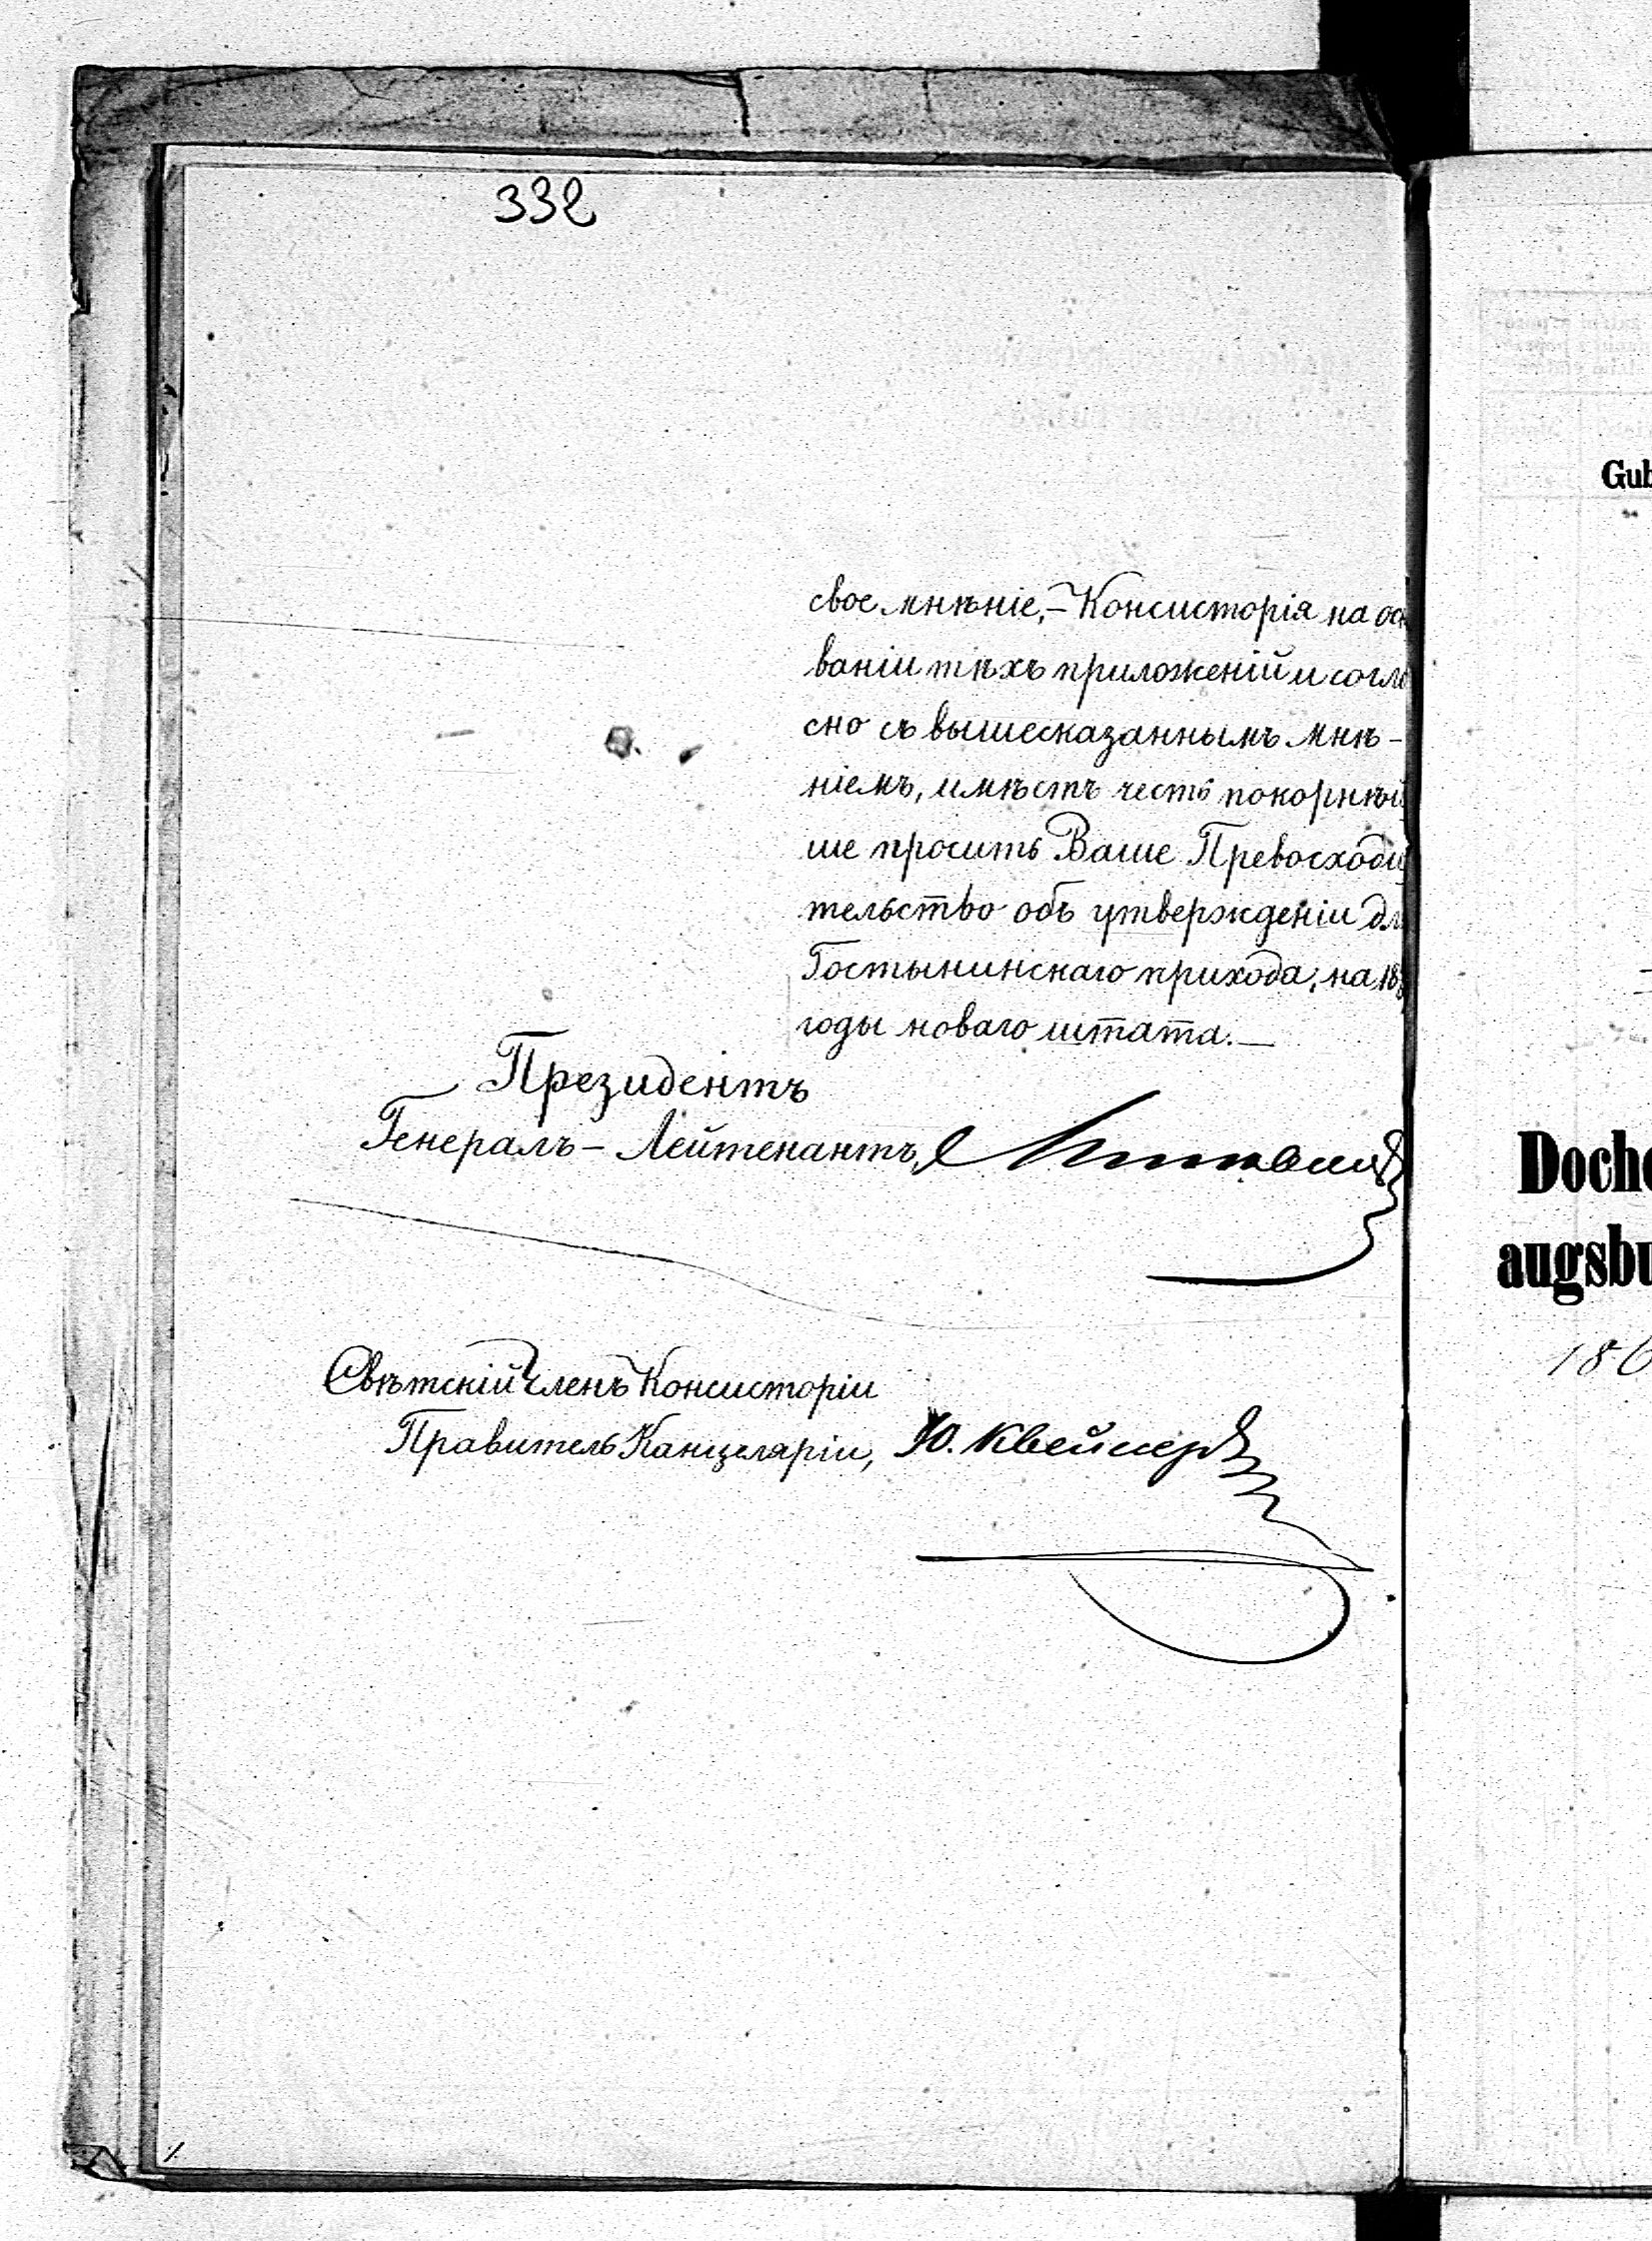 332
свое мнѣніе, – Консисторія на ос
ваніи тѣхъ приложеній и согла
сно съ вышесказаннымъ мнѣ-
ніемъ, имѣетъ честь покорнѣй
ше просить Ваше Превосходи
тельство объ утвержденіи дл
Гостынинскаго прихода, на 18
годы новаго штата. —
Президентъ
Генералъ - Лейтенантъ,
Свѣтскій Членъ Консисторіи
Правитель Канцеляріи, Ю. Квейссеръ
Gub
Doch
augsbu
186